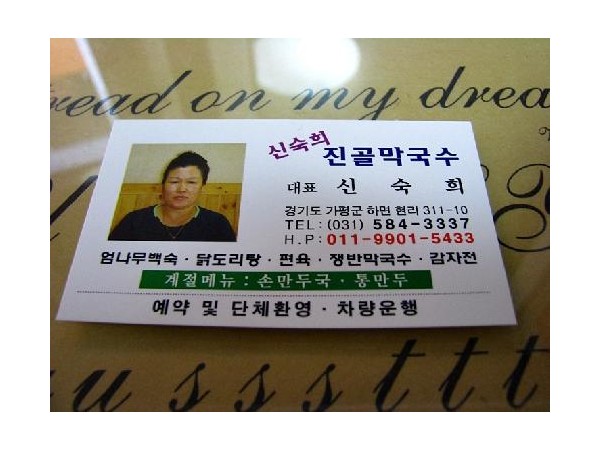 read on my drea
신숙희
진골막국수
대표 신숙희
경기도 가평군 하면 현리 311-10
TEL: (031) 584-3337
H.P: 011-9901-5433
엄나무백숙·닭도리탕·편육·쟁반막국수·감자전
계절메뉴 : 손만두국·통만두
예약 및 단체환영·차량운행
u sssttt